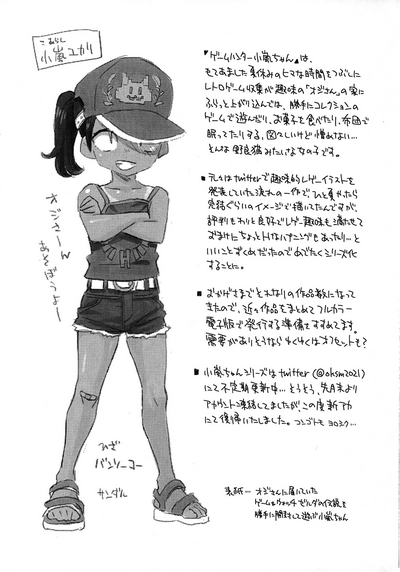 こあらし
小嵐ユカリ
オジさーん
あそぼうよー
H
ひざ
バンソーコー
サンダル
『ゲームハンター小嵐ちゃん』は、
もてあました夏休みのヒマな時間をつぶしに
レトロゲーム収集が趣味の「オジさん」の家に
ふらっと上がり込んでは、勝手にコレクションの
ゲームで遊んだり、お菓子を食べたり、布団で
眠ってたりする、図々しいけど憎めない…
そんな野良猫みたいな女の子です。
■元々はtwitterで趣味的レゲーイラストを
発表していた流れの一作で、ひと夏かたら
完結ぐらいのイメージで描いてたんですが、
評判もわりと良好でレゲー趣味も満たせて
おまけにちょっとHなハプニングもあったりーと
いいことずくめだったのでめでたくシリーズ化
することに。
■おかげさまでそれなりの作品数になって
きたので、近々作品をまとめてフルカラー
電子版で発行する準備をすすめてます。
需要がありそうならゆくゆくはオフセットも?
■小嵐ちゃんシリーズはtwitter(@ohsm2021)
にて不定期更新中…とうとう、先月末より
アカウント凍結してましたがこの度新アカ
にて復帰いたしました。コンゴトモ ヨロシク…
表紙ー オジさんに届いていた
ゲーム&ウォッチ ゼルダの伝説を
勝手に開封して遊ぶ小嵐ちゃん